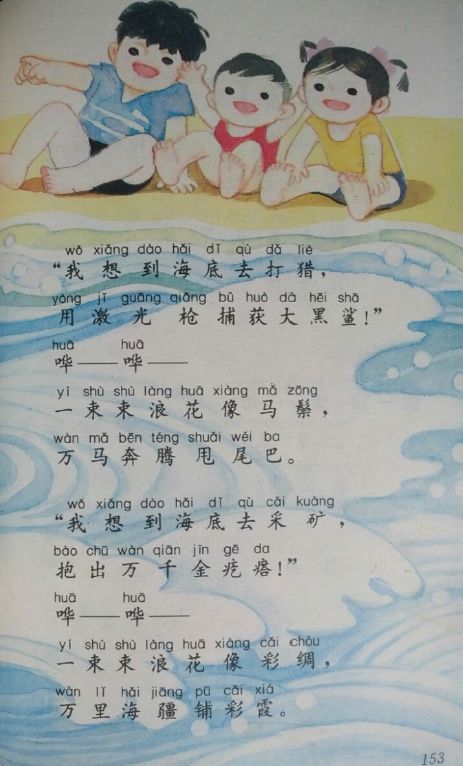 wǒ xiǎng dào hǎi dǐ qù dǎ liè
“我想到海底去打猎，
yòng jī guāng qiāng bǔ huò dà hēi shā
用激光枪捕获大黑鲨！”
huā huā
哗——哗——
yí shù shù làng huā xiàng mǎ zōng
一束束浪花像马鬃，
wàn mǎ bēn téng shuǎi wěi ba
万马奔腾甩尾巴。
wǒ xiǎng dào hǎi dǐ qù cǎi kuàng
“我想到海底去采矿，
bào chū wàn qiān jīn gē da
抱出万千金疙瘩！”
huā huā
哗——哗——
yí shù shù làng huā xiàng cǎi chóu
一束束浪花像彩绸，
wàn lǐ hǎi jiāng pū cǎi xiá
万里海疆铺彩霞。
153